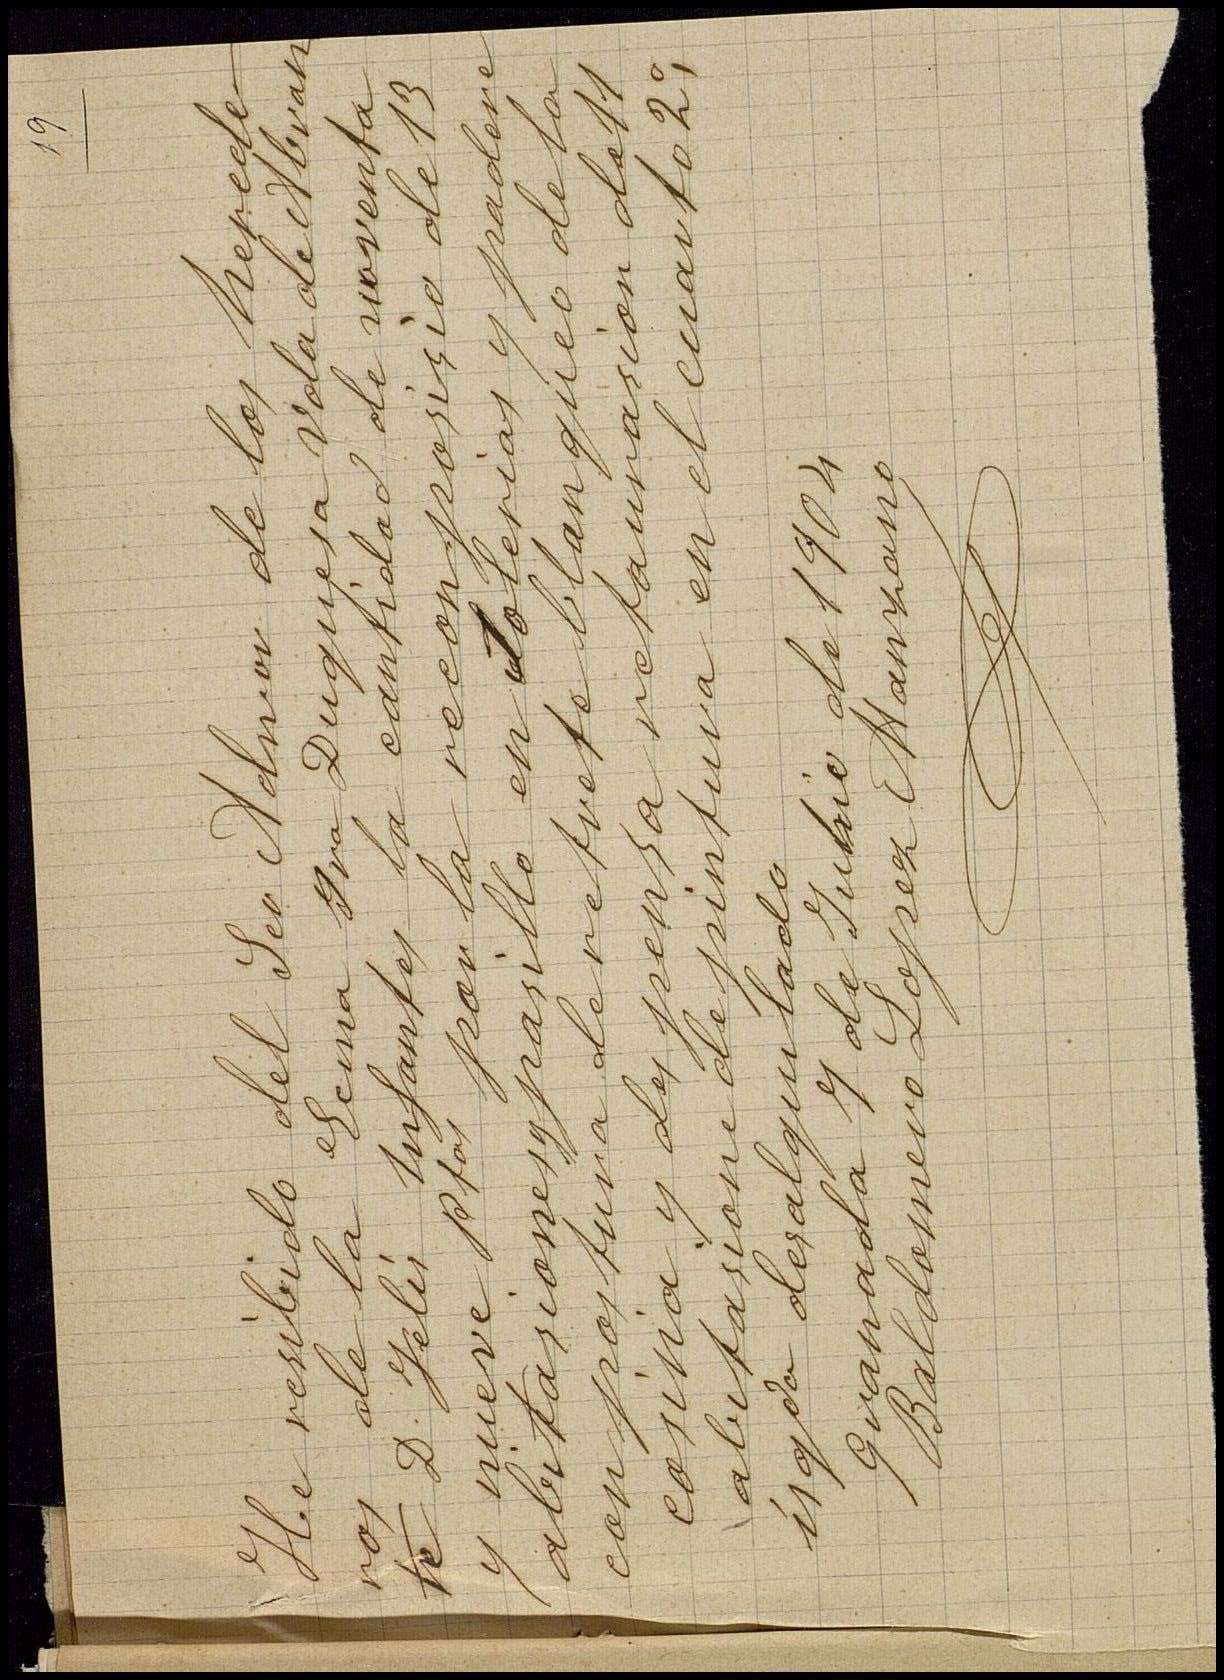 19
He resibido del Seo Admor de los herede
ros de la Ecma Sra Duquesa Vda de Abran
te D. Felis Infantes la cantidad de noventa
y nueve Ptas por la reconposisio de 13
abitasiones y pasillo en solerias y padere
conpostura de retrete blanqueo de la
cosina y despensa restaurasion de 11
abitasione de pintura en el cuarto 2º,
isqda desalquilado
Granada 7 de Julio de 1904
Baldomero Lopez Manzano